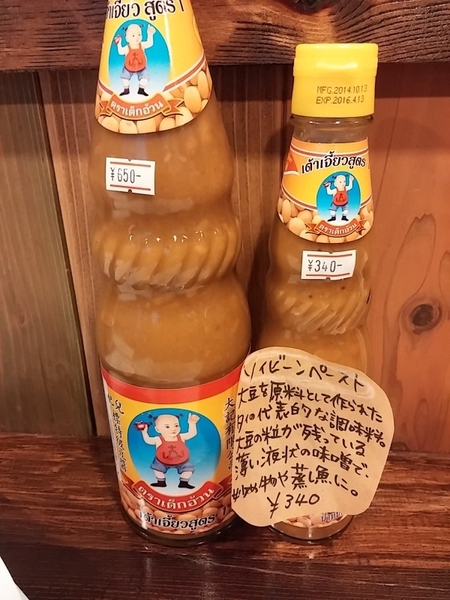 ต้าเจี้ยว สูตร 1
ตราเด็กอ้วน
¥650-
ตราเด็กอ้วน
เต้าเจี้ยวสูตร 1
MFG.2014.10.13
EXP 2016.4.13
เต้าเจี้ยวสูตร
ตราเด็กอ้วน
¥340-
ソイビーンペースト
大豆を原料として作られた
タイの代表的な調味料。
大豆の粒が残っている
薄い液状の味噌で、
炒め物や蒸し魚に。
¥340